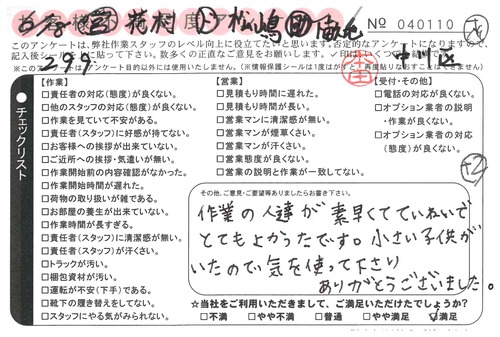 № 040110
このアンケートは、弊社作業スタッフのレベル向上に役立てたいと思います。否定的なアンケートになりますので、
299
【作業】
□責任者の対応(態度)が良くない。
□他のスタッフの対応(態度)が良くない。
□作業を見ていて不安がある。
□責任者(スタッフ)に好感が持てない。
□お客様への挨拶が出来ていない。
□ご近所への挨拶・気遣いが無い。
□作業開始前の内容確認がなかった。
□作業開始時間が遅れた。
□荷物の取り扱いが雑である。
□お部屋の養生が出来ていない。
□作業時間が長すぎる。
□責任者(スタッフ)に清潔感が無い。
□責任者(スタッフ)が汗くさい。
□トラックが汚い。
□梱包資材が汚い。
□運転が不安(下手)である。
□靴下の履き替えをしてない。
□スタッフにやる気がみられない。
【営業】
□見積もり時間に遅れた。
□見積もり時間が長い。
□営業マンに清潔感が無い。
□営業マンが煙草くさい。
□営業マンが汗くさい。
□営業態度が良くない。
□営業の説明と作業が一致してない。
【受付・その他】
□電話の対応が良くない。
□オプション業者の説明
・作業が良くない。
□オプション業者の対応
(態度)が良くない。
チェックリスト
その他、ご意見・ご要望等ありましたらお書き下さい。
作業の人達が素早くてていねいで
とてもよかったです。小さい子供が
いたので気を使って下さり
ありがとうございました。
☆当社をご利用いただきまして、ご満足いただけたでしょうか?
□不満 □やや不満 □普通 □やや満足 ☑満足